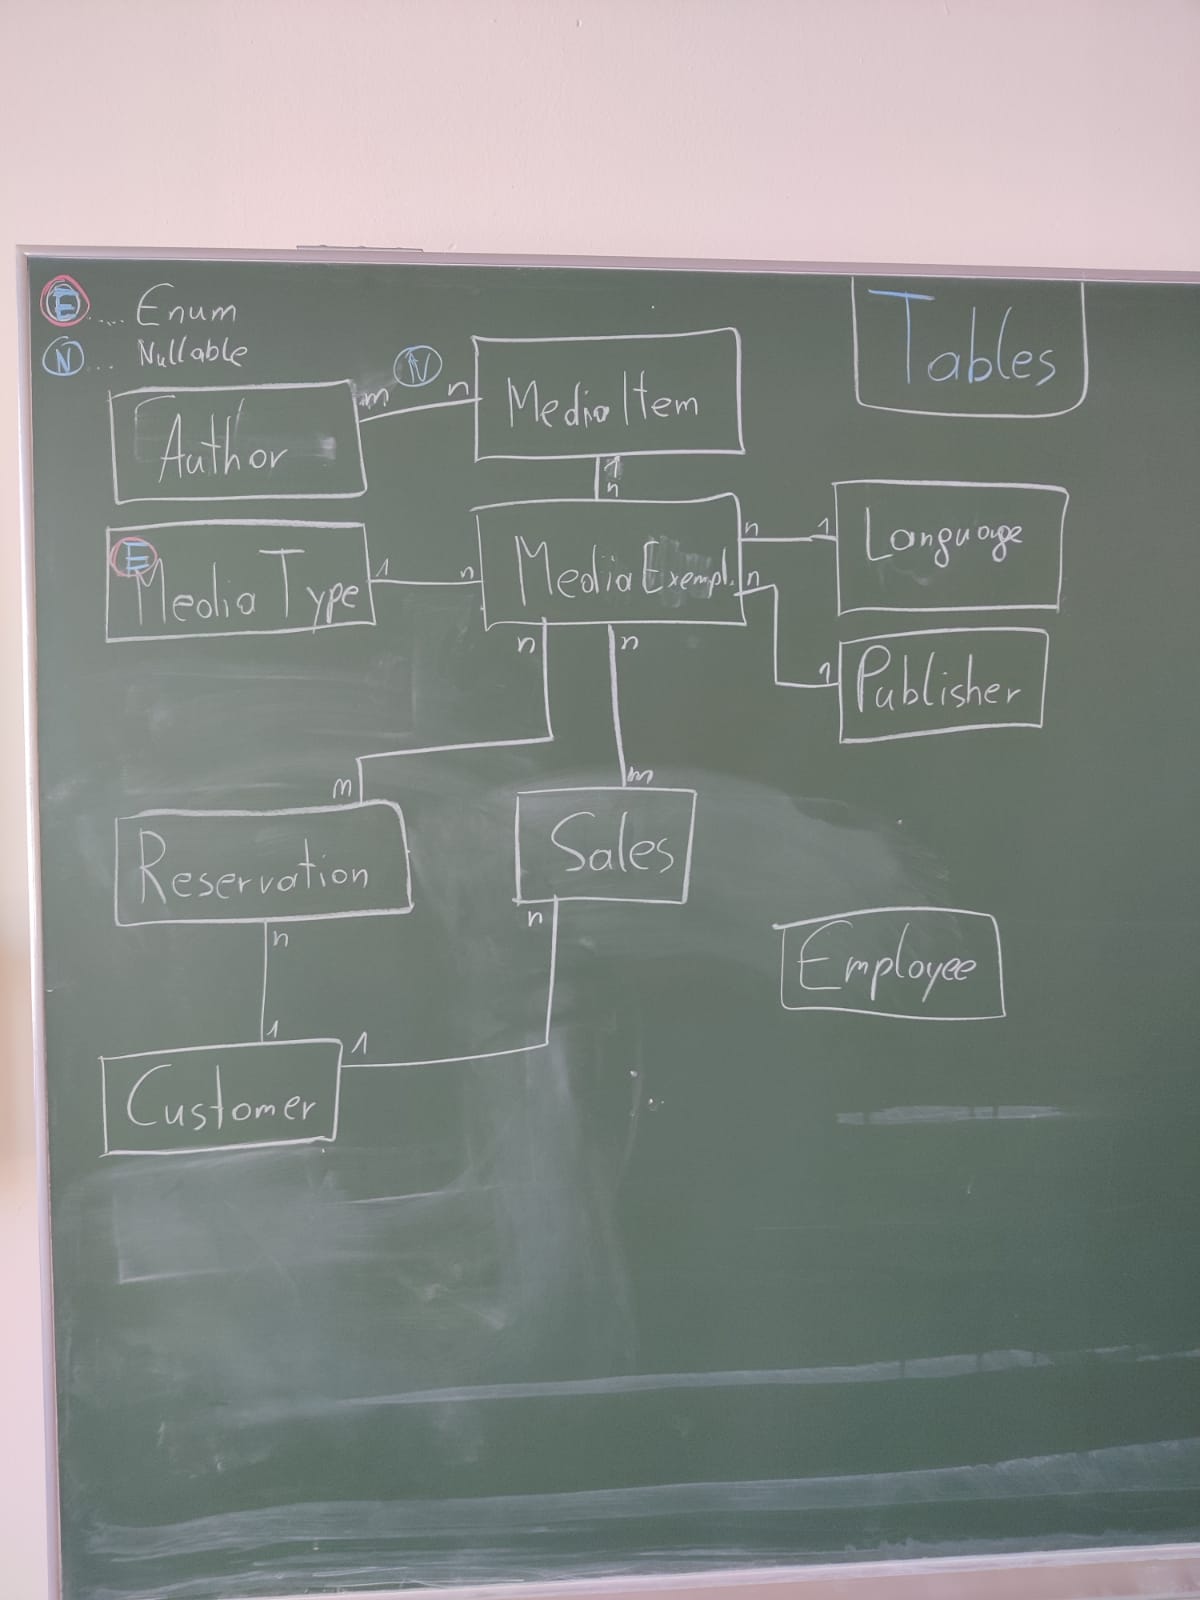 E .... Enum
N ... Nullable
Tables
Author
m
N
n
MediaItem
1
n
E
MediaType
1
n
MediaExempl.
n
1
Language
n
1
Publisher
n
n
m
m
Reservation
Sales
n
n
1
1
Customer
Employee